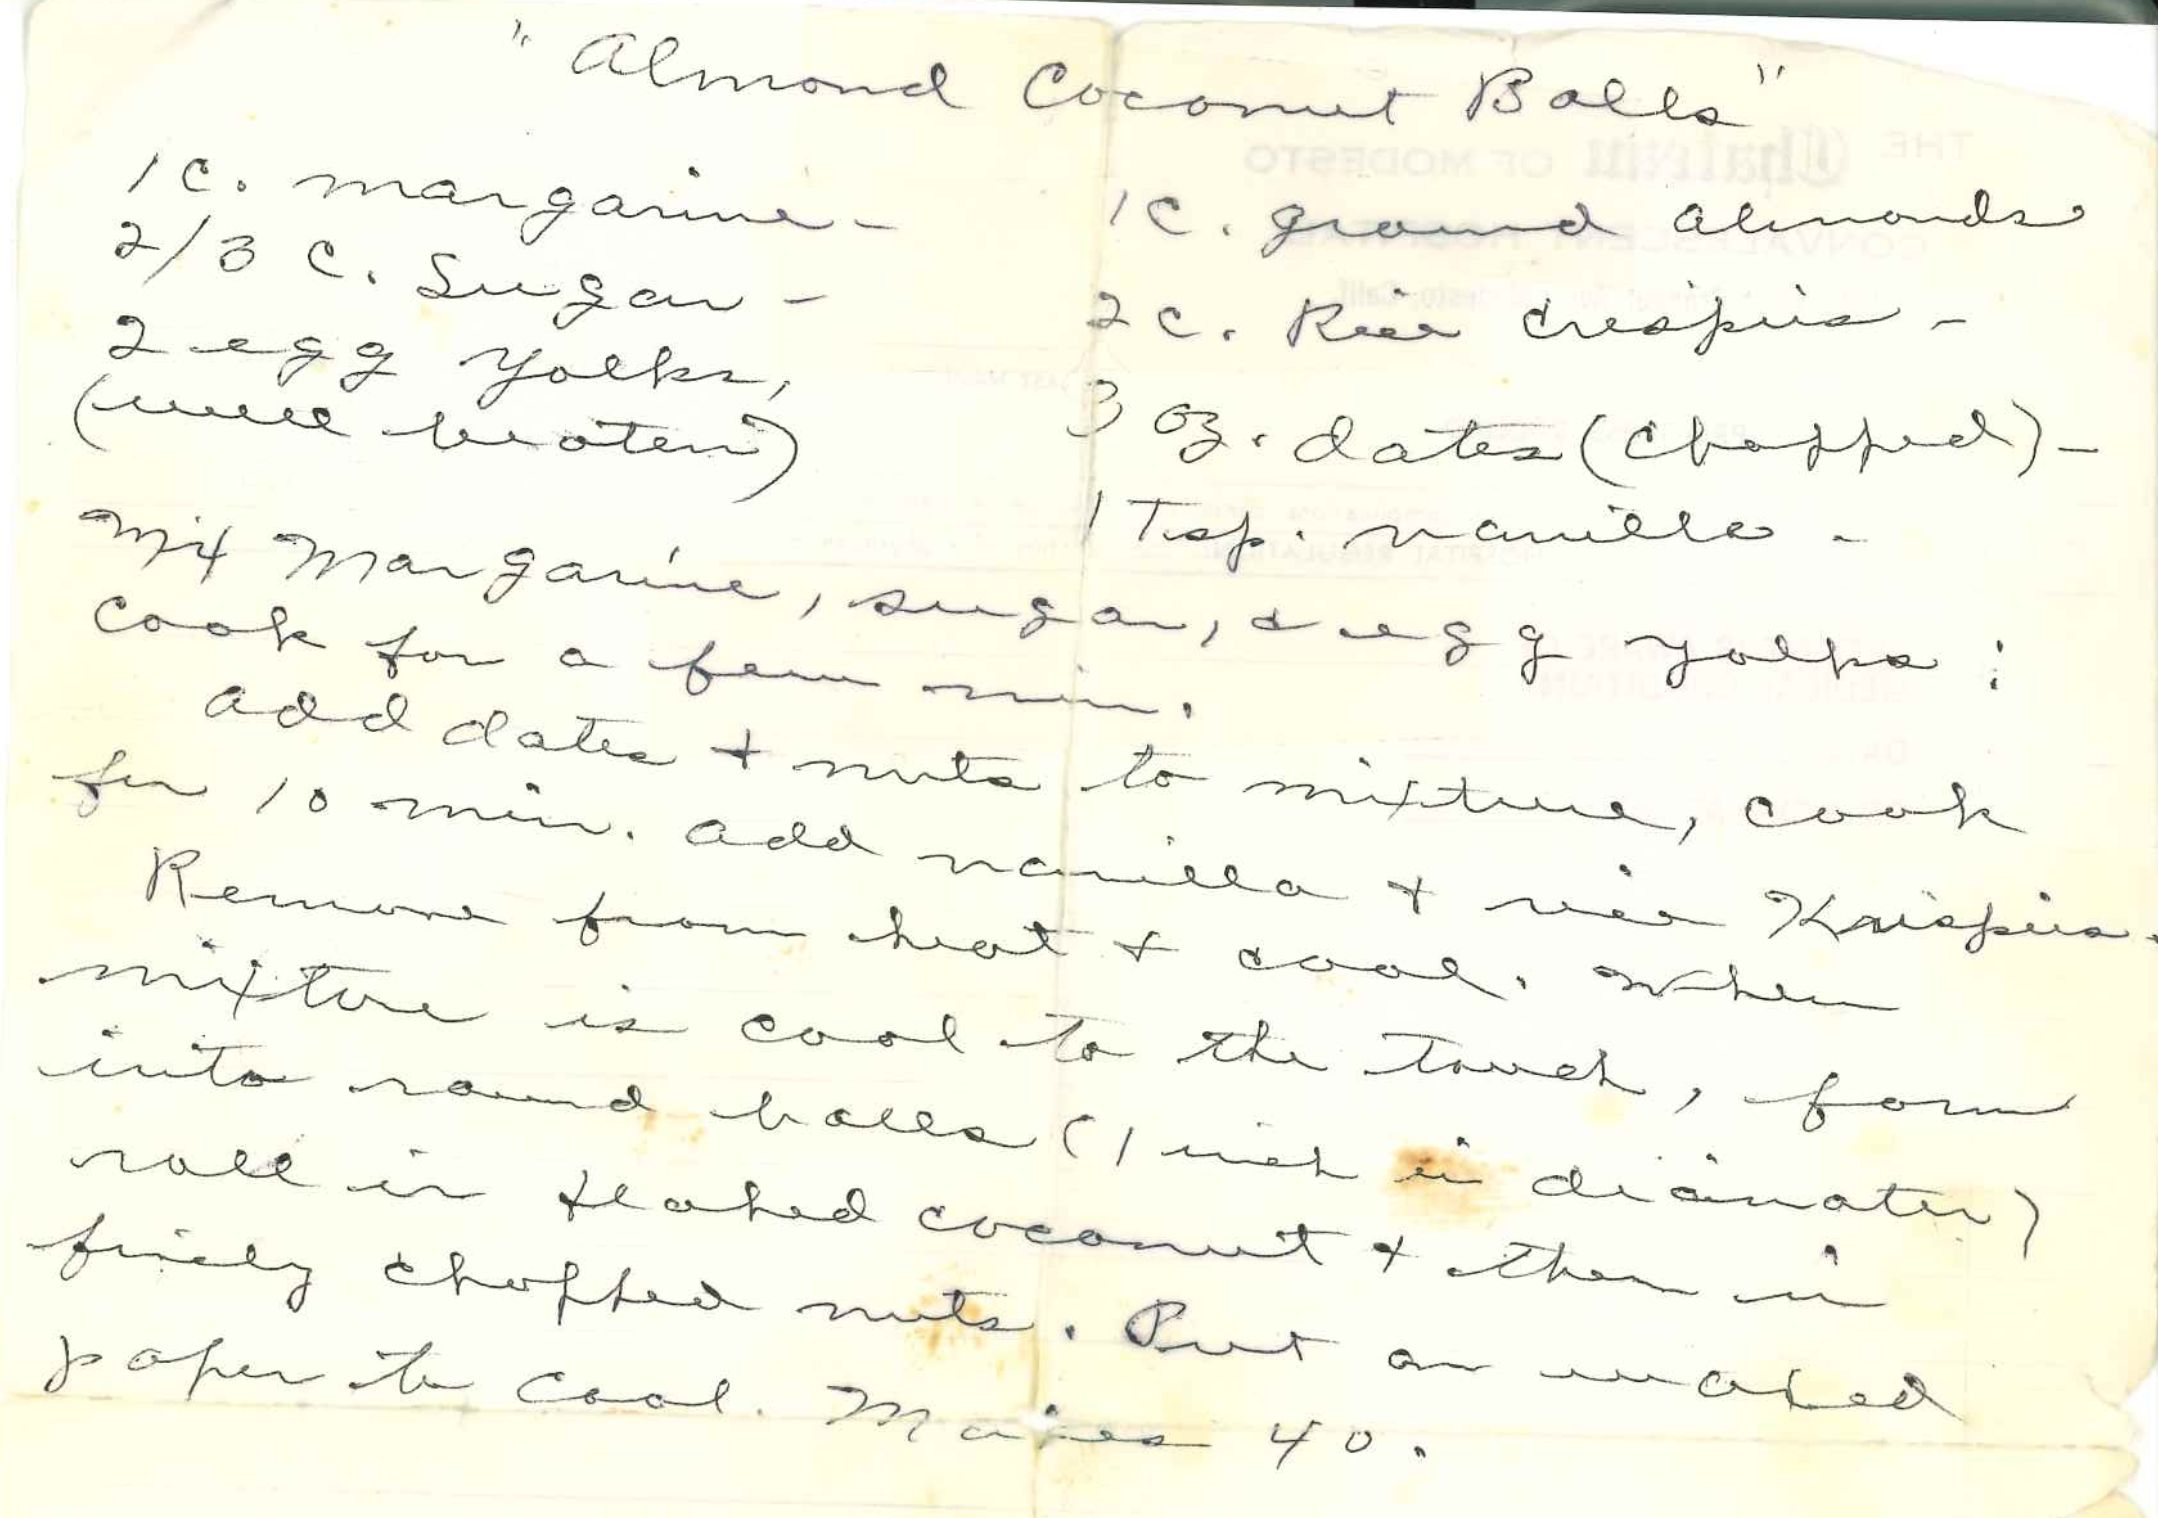 "Almond Coconut Balls"
1 c. margarine -
2/3 c. Sugar -
2 egg yolks,
(well beaten)
1 c. ground almonds
2 c. Rice crispies -
3 oz. dates (chopped) -
1 Tsp. vanilla -
Mix Margarine, sugar, & egg yolks;
cook for a few min.
add dates + nuts to mixture, cook
for 10 min. add vanilla + rice Krispies.
Remove from heat + cool. When
mixture is cool to the touch, form
into round balls (1 inch in diamater)
roll in flaked coconut + then in
finely chopped nuts. Put on waxed
paper to cool. Makes 40.
THE Chateau OF MODESTO
CONVALESCENT HOSPITAL